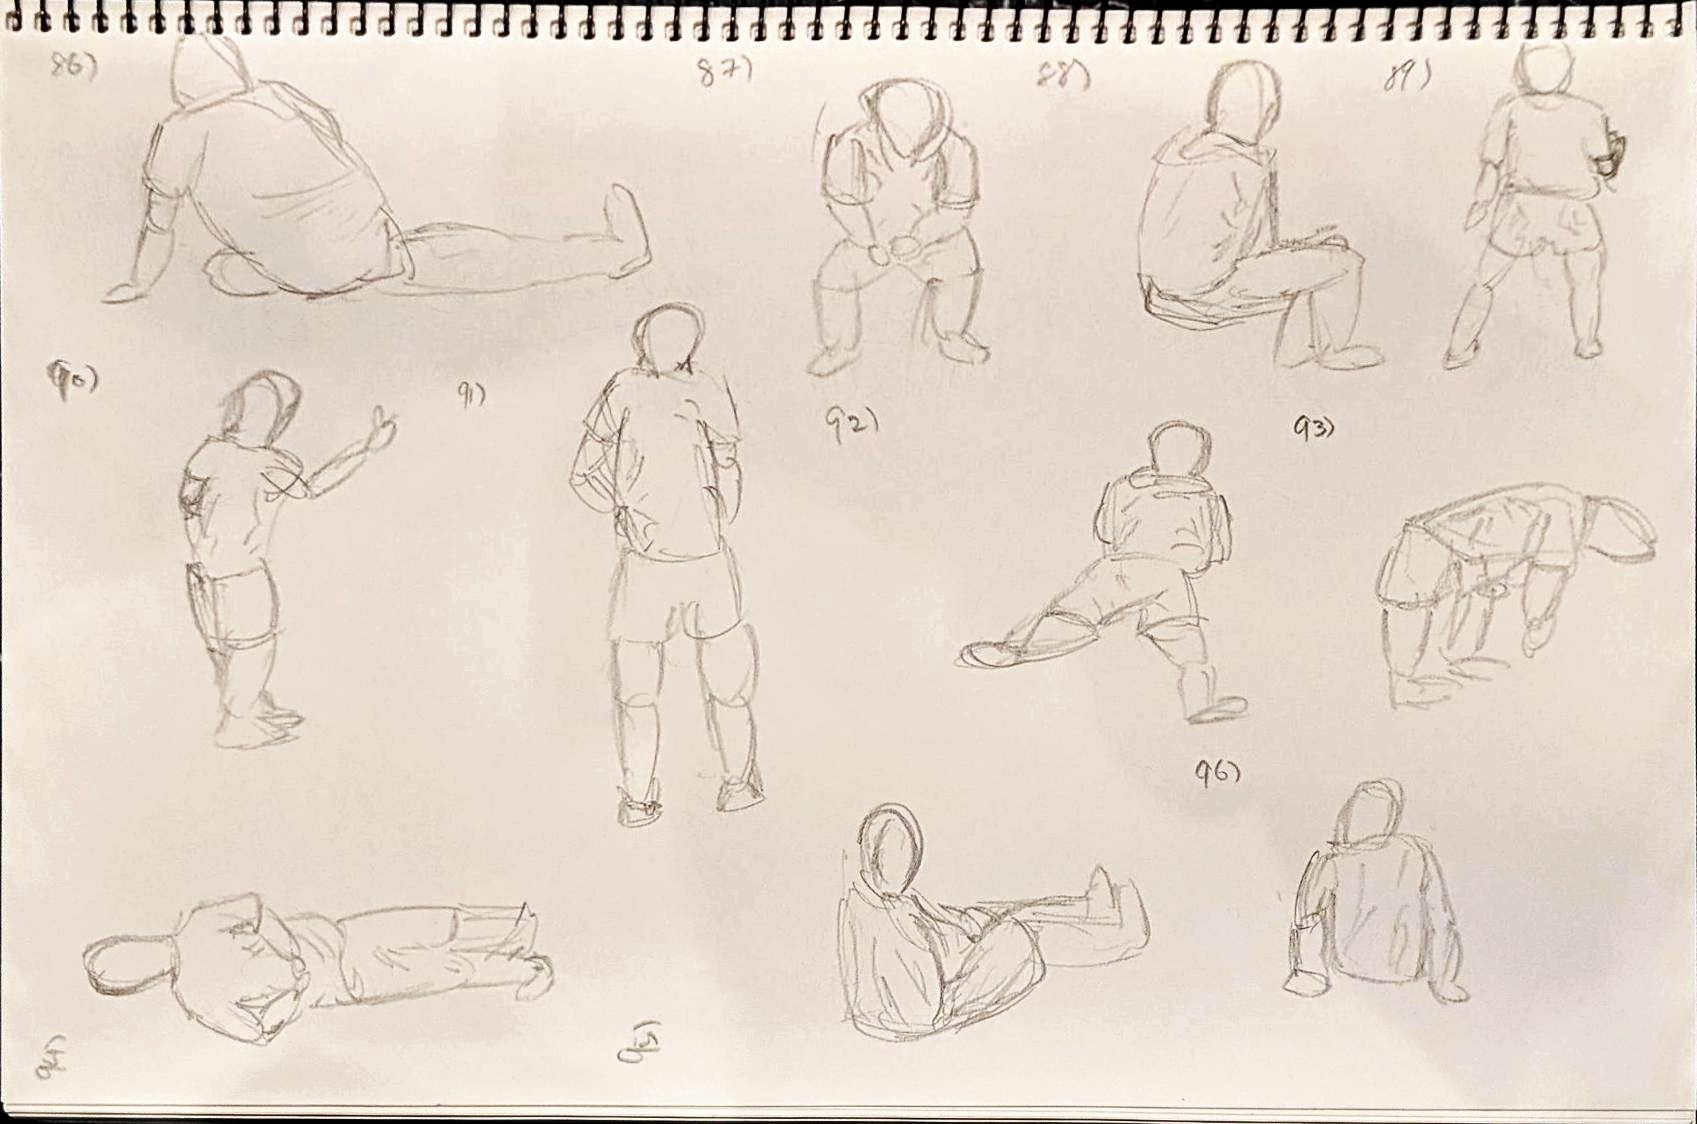 86)
87)
88)
89)
90)
91)
92)
93)
96)
94)
95)